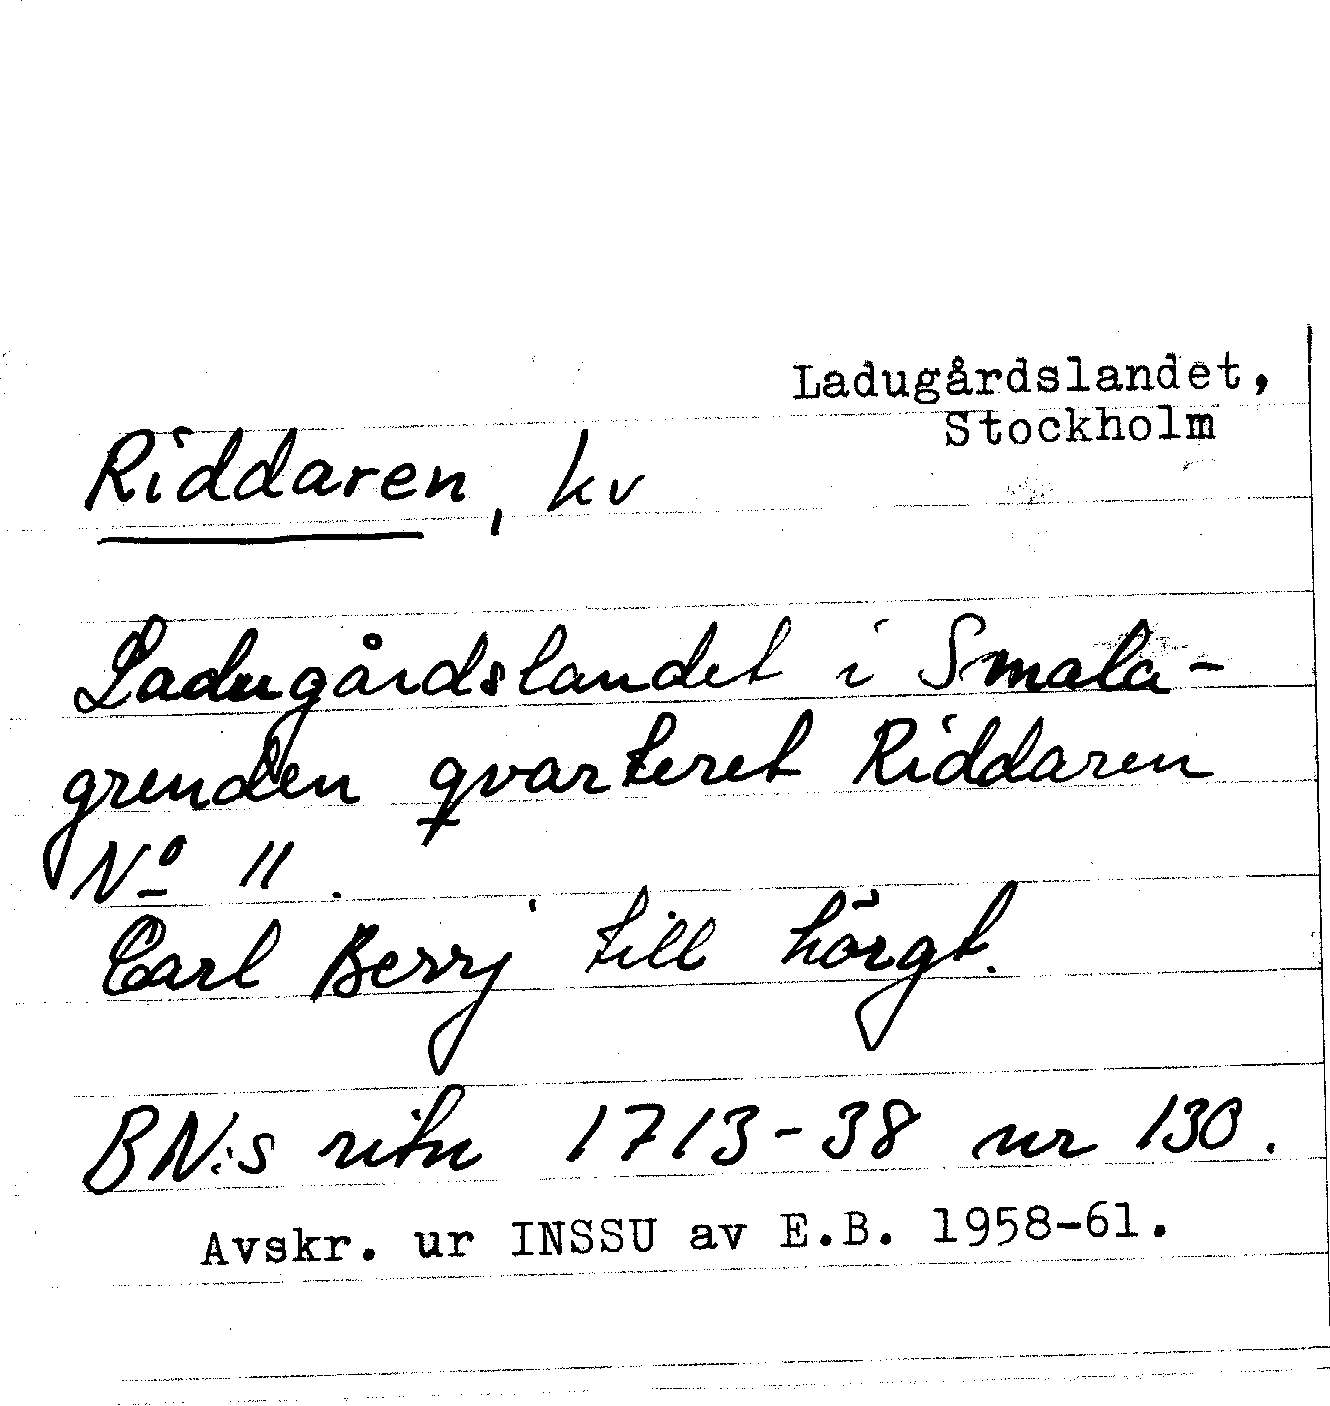 Ladugårdslandet,
Stockholm
Riddaren, kv
Ladugårdslandet i Smala-
grenden qvarteret Riddaren
No 11.
Carl Berrj till hörgt.
BN:s ritn 1713-38 nr 130.
Avskr. ur INSSU av E.B. 1958-61.